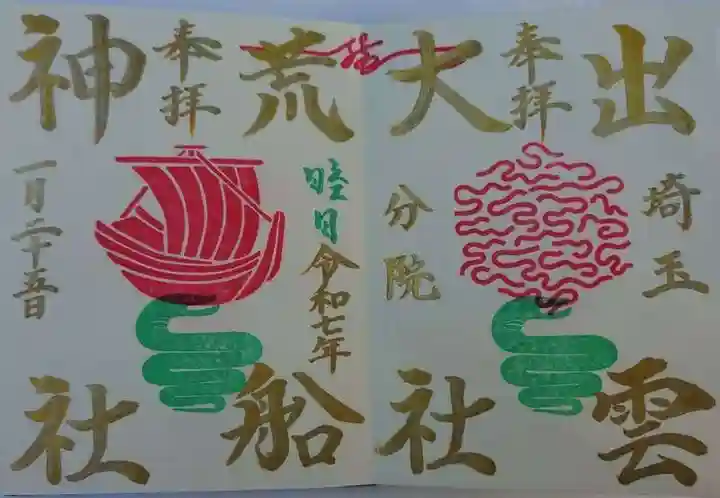 出雲
埼玉
奉拝
分院
大社
結
荒船
睦月
令和七年
奉拝
神社
一月二十五日